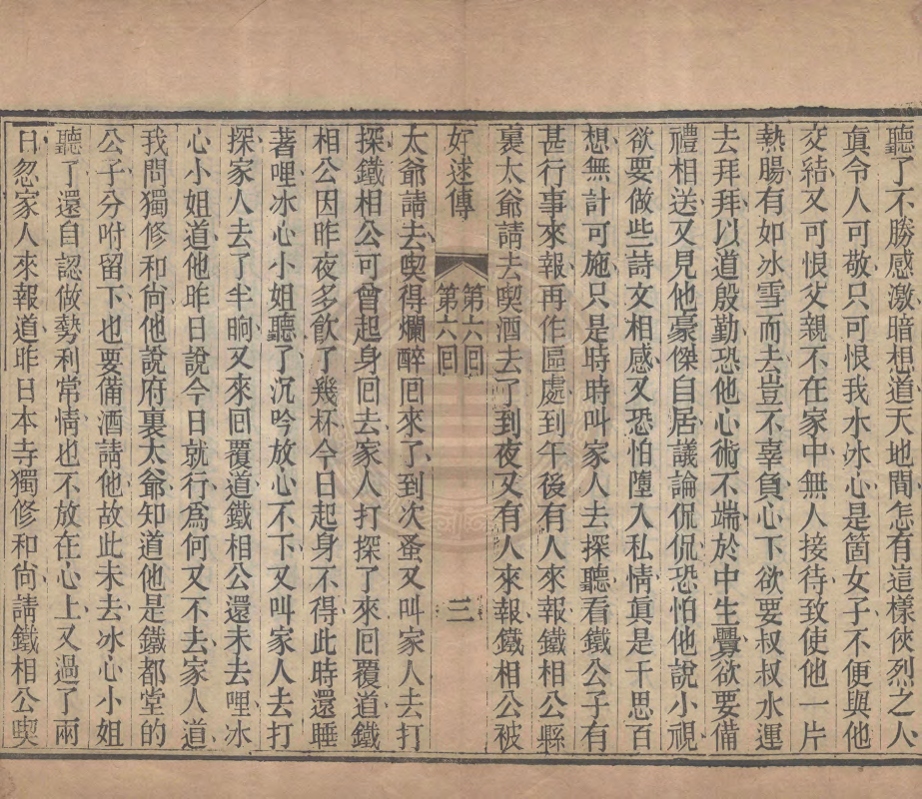 聽了不勝感激暗想道天地間怎有這樣俠烈之人
眞令人可敬只可恨我水冰心是箇女子不便與他
交結又可恨父親不在家中無人接待致使他一片
熱腸有如冰雪而去豈不辜負心下欲要叔叔水運
去拜拜以道殷勤恐他心術不端於中生釁欲要備
禮相送又見他豪傑自居議論侃侃恐怕他說小視
欲要做些詩文相感又恐怕墮入私情眞是千思百
想無計可施只是時時叫家人去探聽看鐵公子有
甚行事來報再作區處到午後有人來報鐵相公縣
裏太爺請去喫酒去了到夜又有人來報鐵相公被
好逑傳 第六回 第六回 三
太爺請去喫得爛醉回來了到次蚤又叫家人去打
探鐵相公可曾起身回去家人打探了來回覆道鐵
相公因昨夜多飲了幾杯今日起身不得此時還睡
著哩冰心小姐聽了沉吟放心不下又叫家人去打
探家人去了半晌又來回覆道鐵相公還未去哩冰
心小姐道他昨日說今日就行爲何又不去家人道
我問獨修和尚他說府裏太爺知道他是鐵都堂的
公子分咐留下也要備酒請他故此未去冰心小姐
聽了還自認做勢利常情也不放在心上又過了兩
日忽家人來報道昨日本寺獨修和尚請鐵相公喫